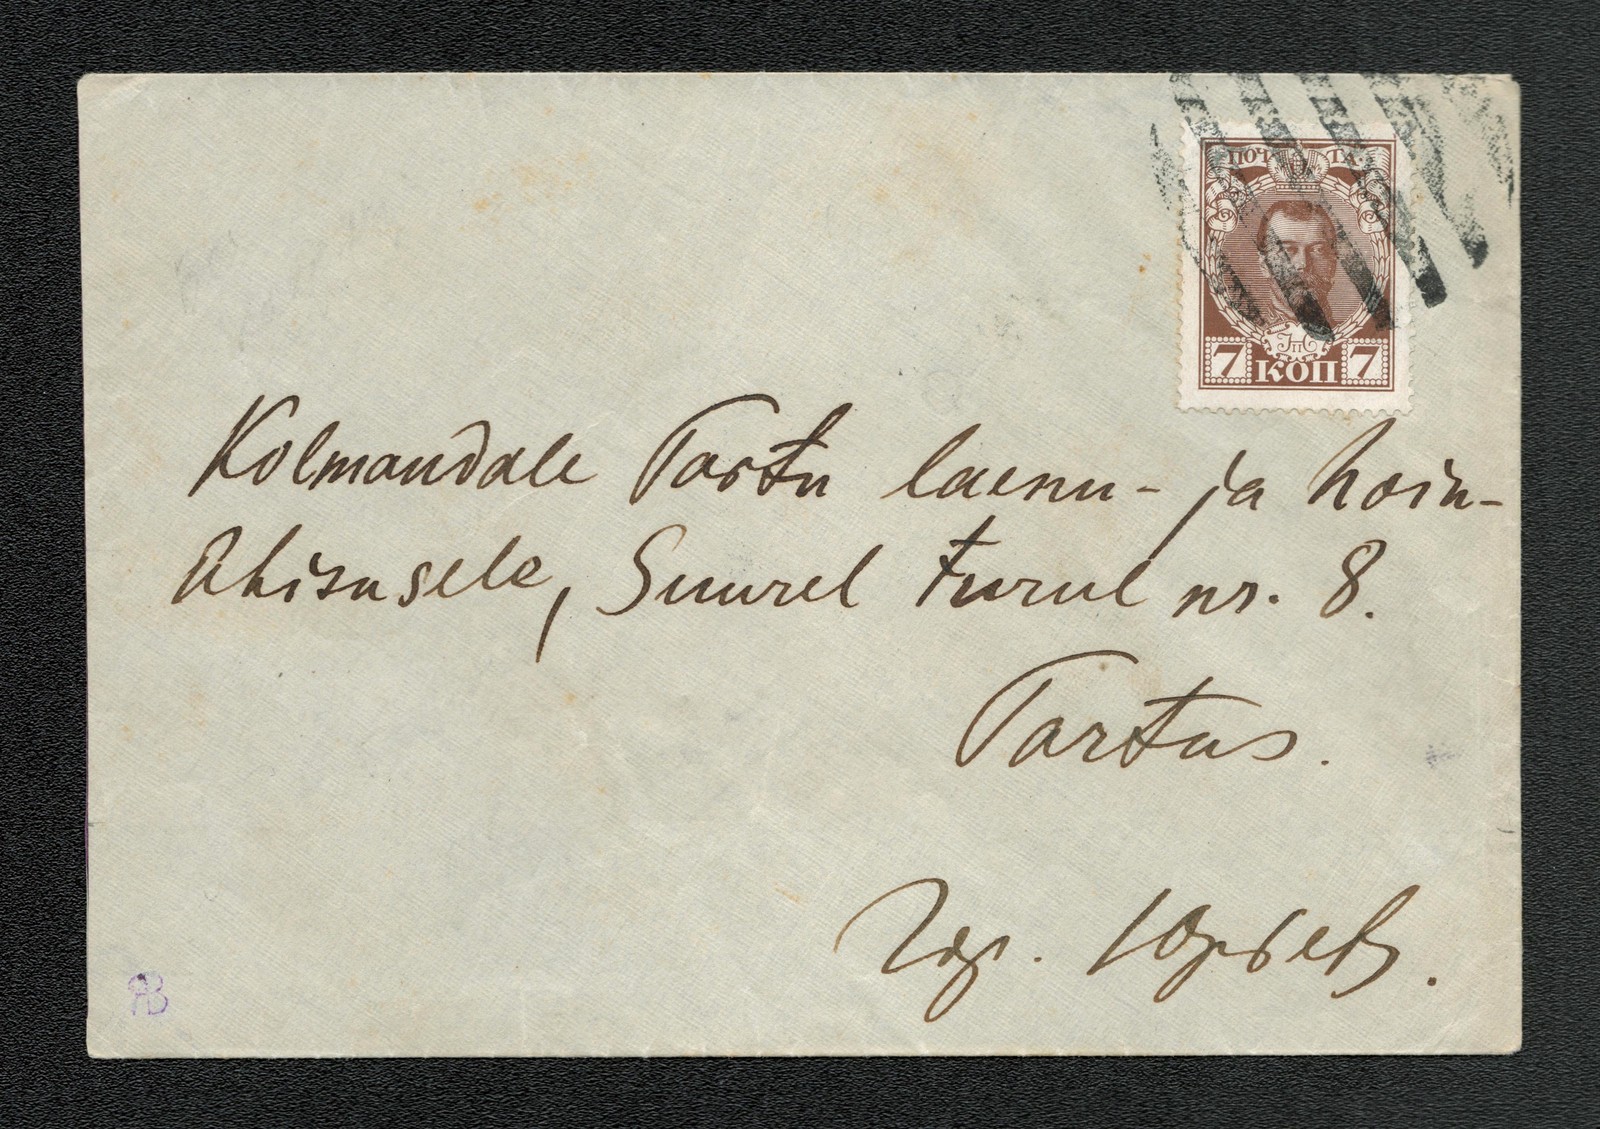 ПОЧТА
7 КОП 7
Kolmandale Tartu laenu- ja hoiu-
ühisusele, Suurel turul nr. 8.
Tartus.
Гор. Юрьевъ.
АВ